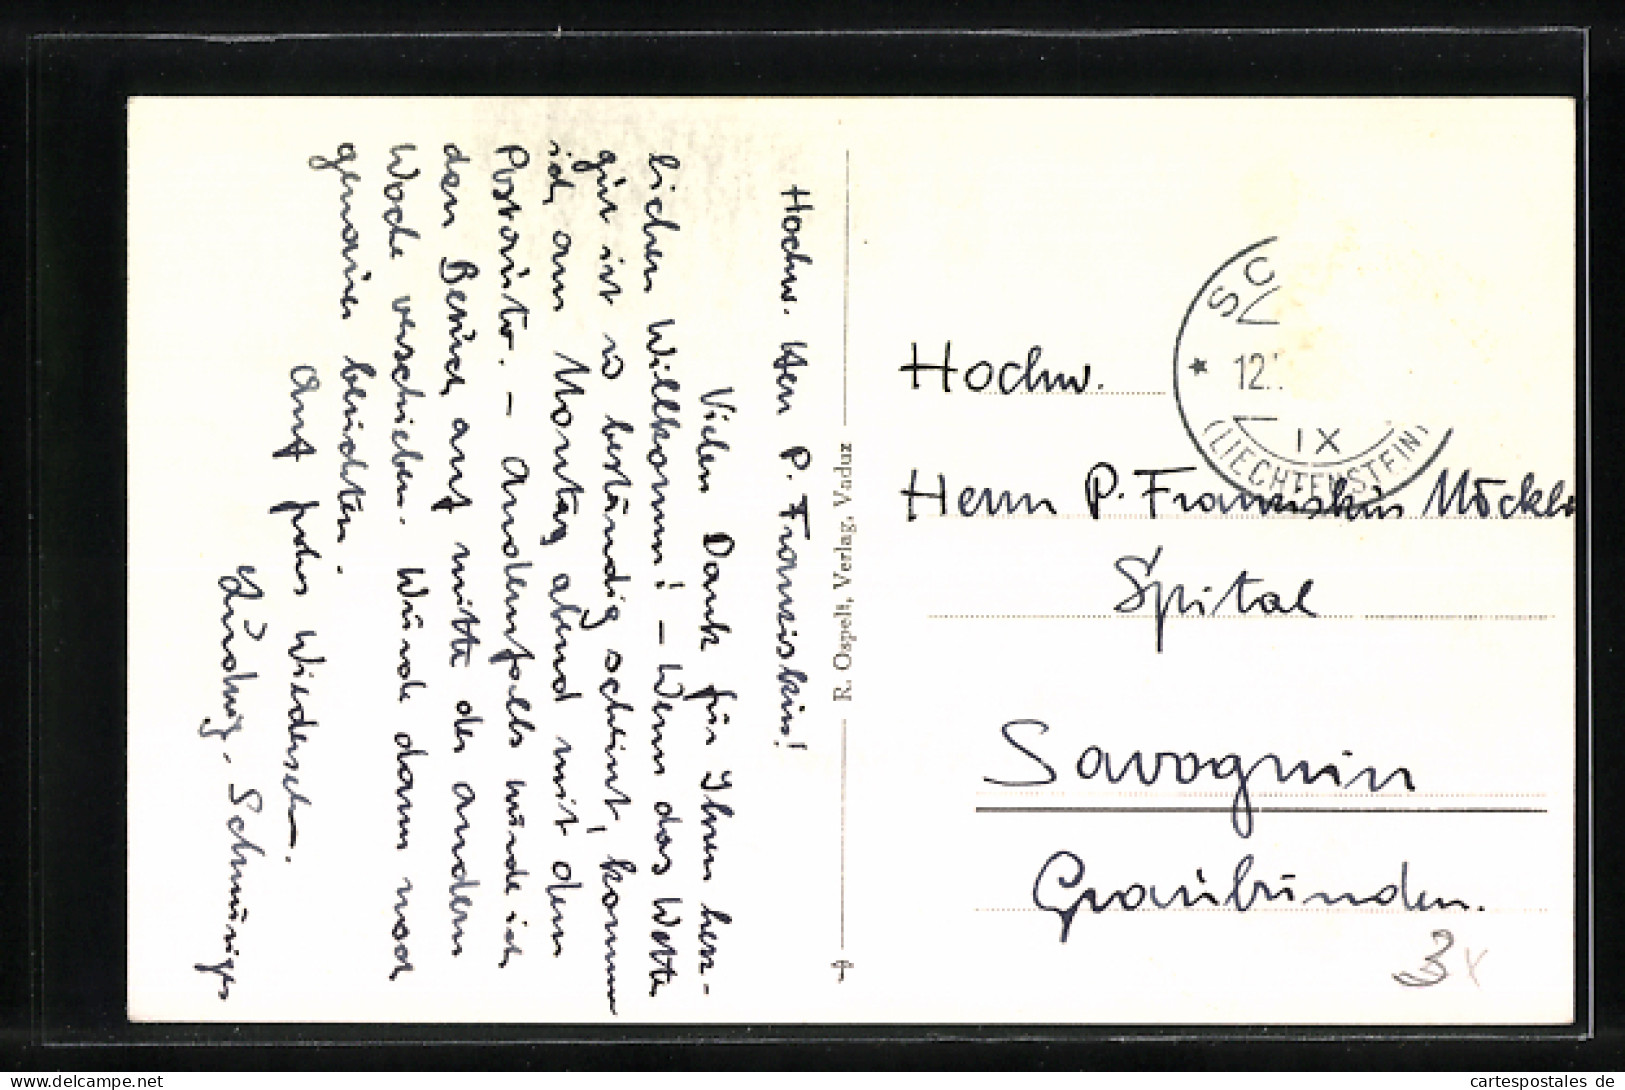 Hochw. Herr P. Franziskus!
Vielen Dank für Ihren herz-
lichen Willkomm! – Wenn das Wetter
gut ist u. beständig scheint, komme
ich am Montag abend mit dem
Postauto. – Andernfalls würde ich
den Besuch auf mitte der andern
Woche verschieben. Würde dann noch
genauer berichten.
Auf frohes Wiedersehen.
R. Ospelt, Verlag, Vaduz
SC
12.
IX
(LIECHTENSTEIN)
Hochw.
Herrn P. Franziskus Möckli
Spital
Savognin
Graubünden.
3x
cartespostales de